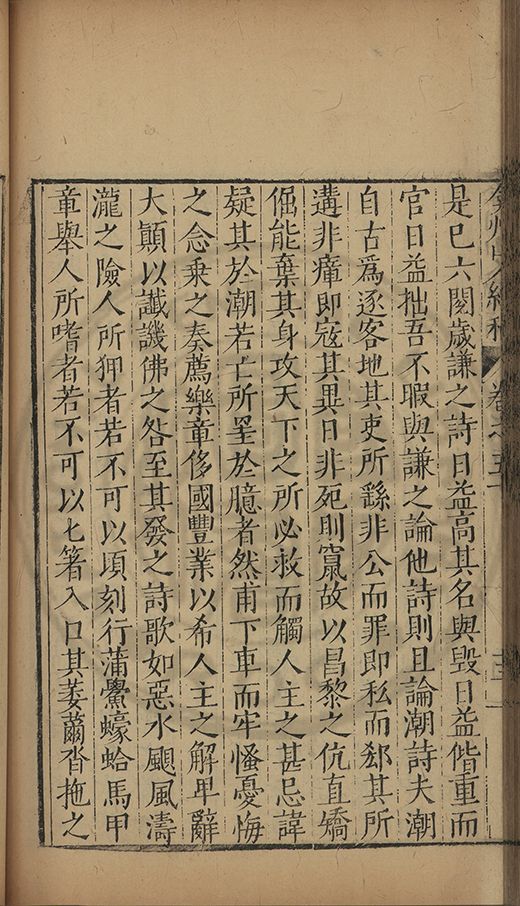 弇州山人續稿 卷之五
是巳六閱歲謙之詩日益高其名與毀日益偕重而
官日益拙吾不暇與謙之論他詩則且論潮詩夫潮
自古爲逐客地其吏所繇非公而罪即私而郄其所
遘非瘴即寇其異日非死則竄故以昌黎之伉直矯
倔能棄其身攻天下之所必救而觸人主之甚忌諱
疑其於潮若亡所罣於臆者然甫下車而牢慅憂悔
之念乗之奏薦樂章侈國豐業以希人主之解卑辭
大顚以懺譏佛之咎至其發之詩歌如惡水颶風濤
瀧之險人所狎者若不可以頃刻行蒲鱟蠔蛤馬甲
章舉人所嗜者若不可以匕箸入口其萎薾沓拖之